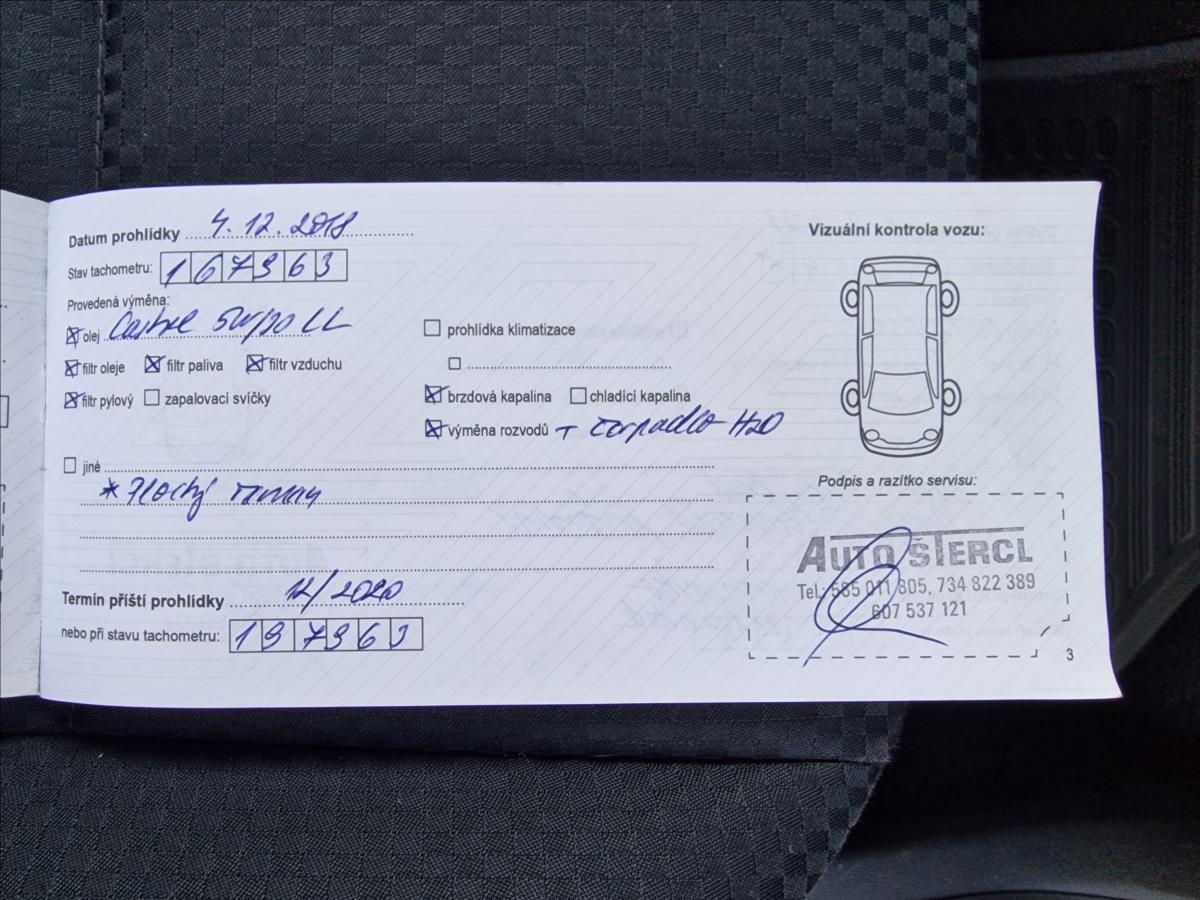 Datum prohlídky 4.12.2018
Stav tachometru: 167963
Provedená výměna:
olej Castrol 5W/30 LL
prohlídka klimatizace
filtr oleje filtr paliva filtr vzduchu
filtr pylový zapalovací svíčky
brzdová kapalina chladící kapalina
výměna rozvodů + čerpadlo H2O
jiné
* Plochý řemen
Termín příští prohlídky 12/2020
nebo při stavu tachometru: 197963
Vizuální kontrola vozu:
Podpis a razítko servisu:
AUTO ŠTERCL
Tel.: 585 011 805, 734 822 389
607 537 121
3